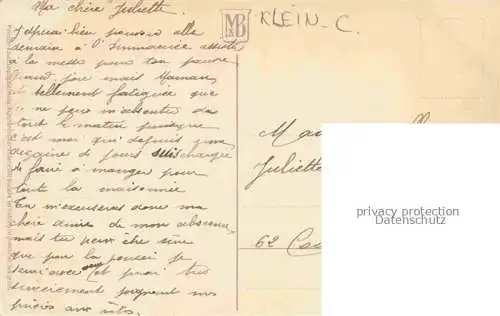 Ma chère Juliette.
J'espérai bien pouvoir alle
demain à l'Immaculée assiste
à la messe pour ton pauvre
Grand' père mais Maman
est tellement fatiguée que
je ne peux m'absenter de
tout le matin puisque
c'est moi qui depuis une
dizaine de jours suis chargée
de faire à manger pour
tout la maisonnée
Tu m'excuseras donc ma
chère amie de mon absence,
mais tu peux être sûre
que par la pensée je
serai avec et prierai très
sincèrement joignant mes
prières aux vôtres.
MB
KLEIN-C.
Ma
Juliette
62 Cou
privacy protection
Datenschutz